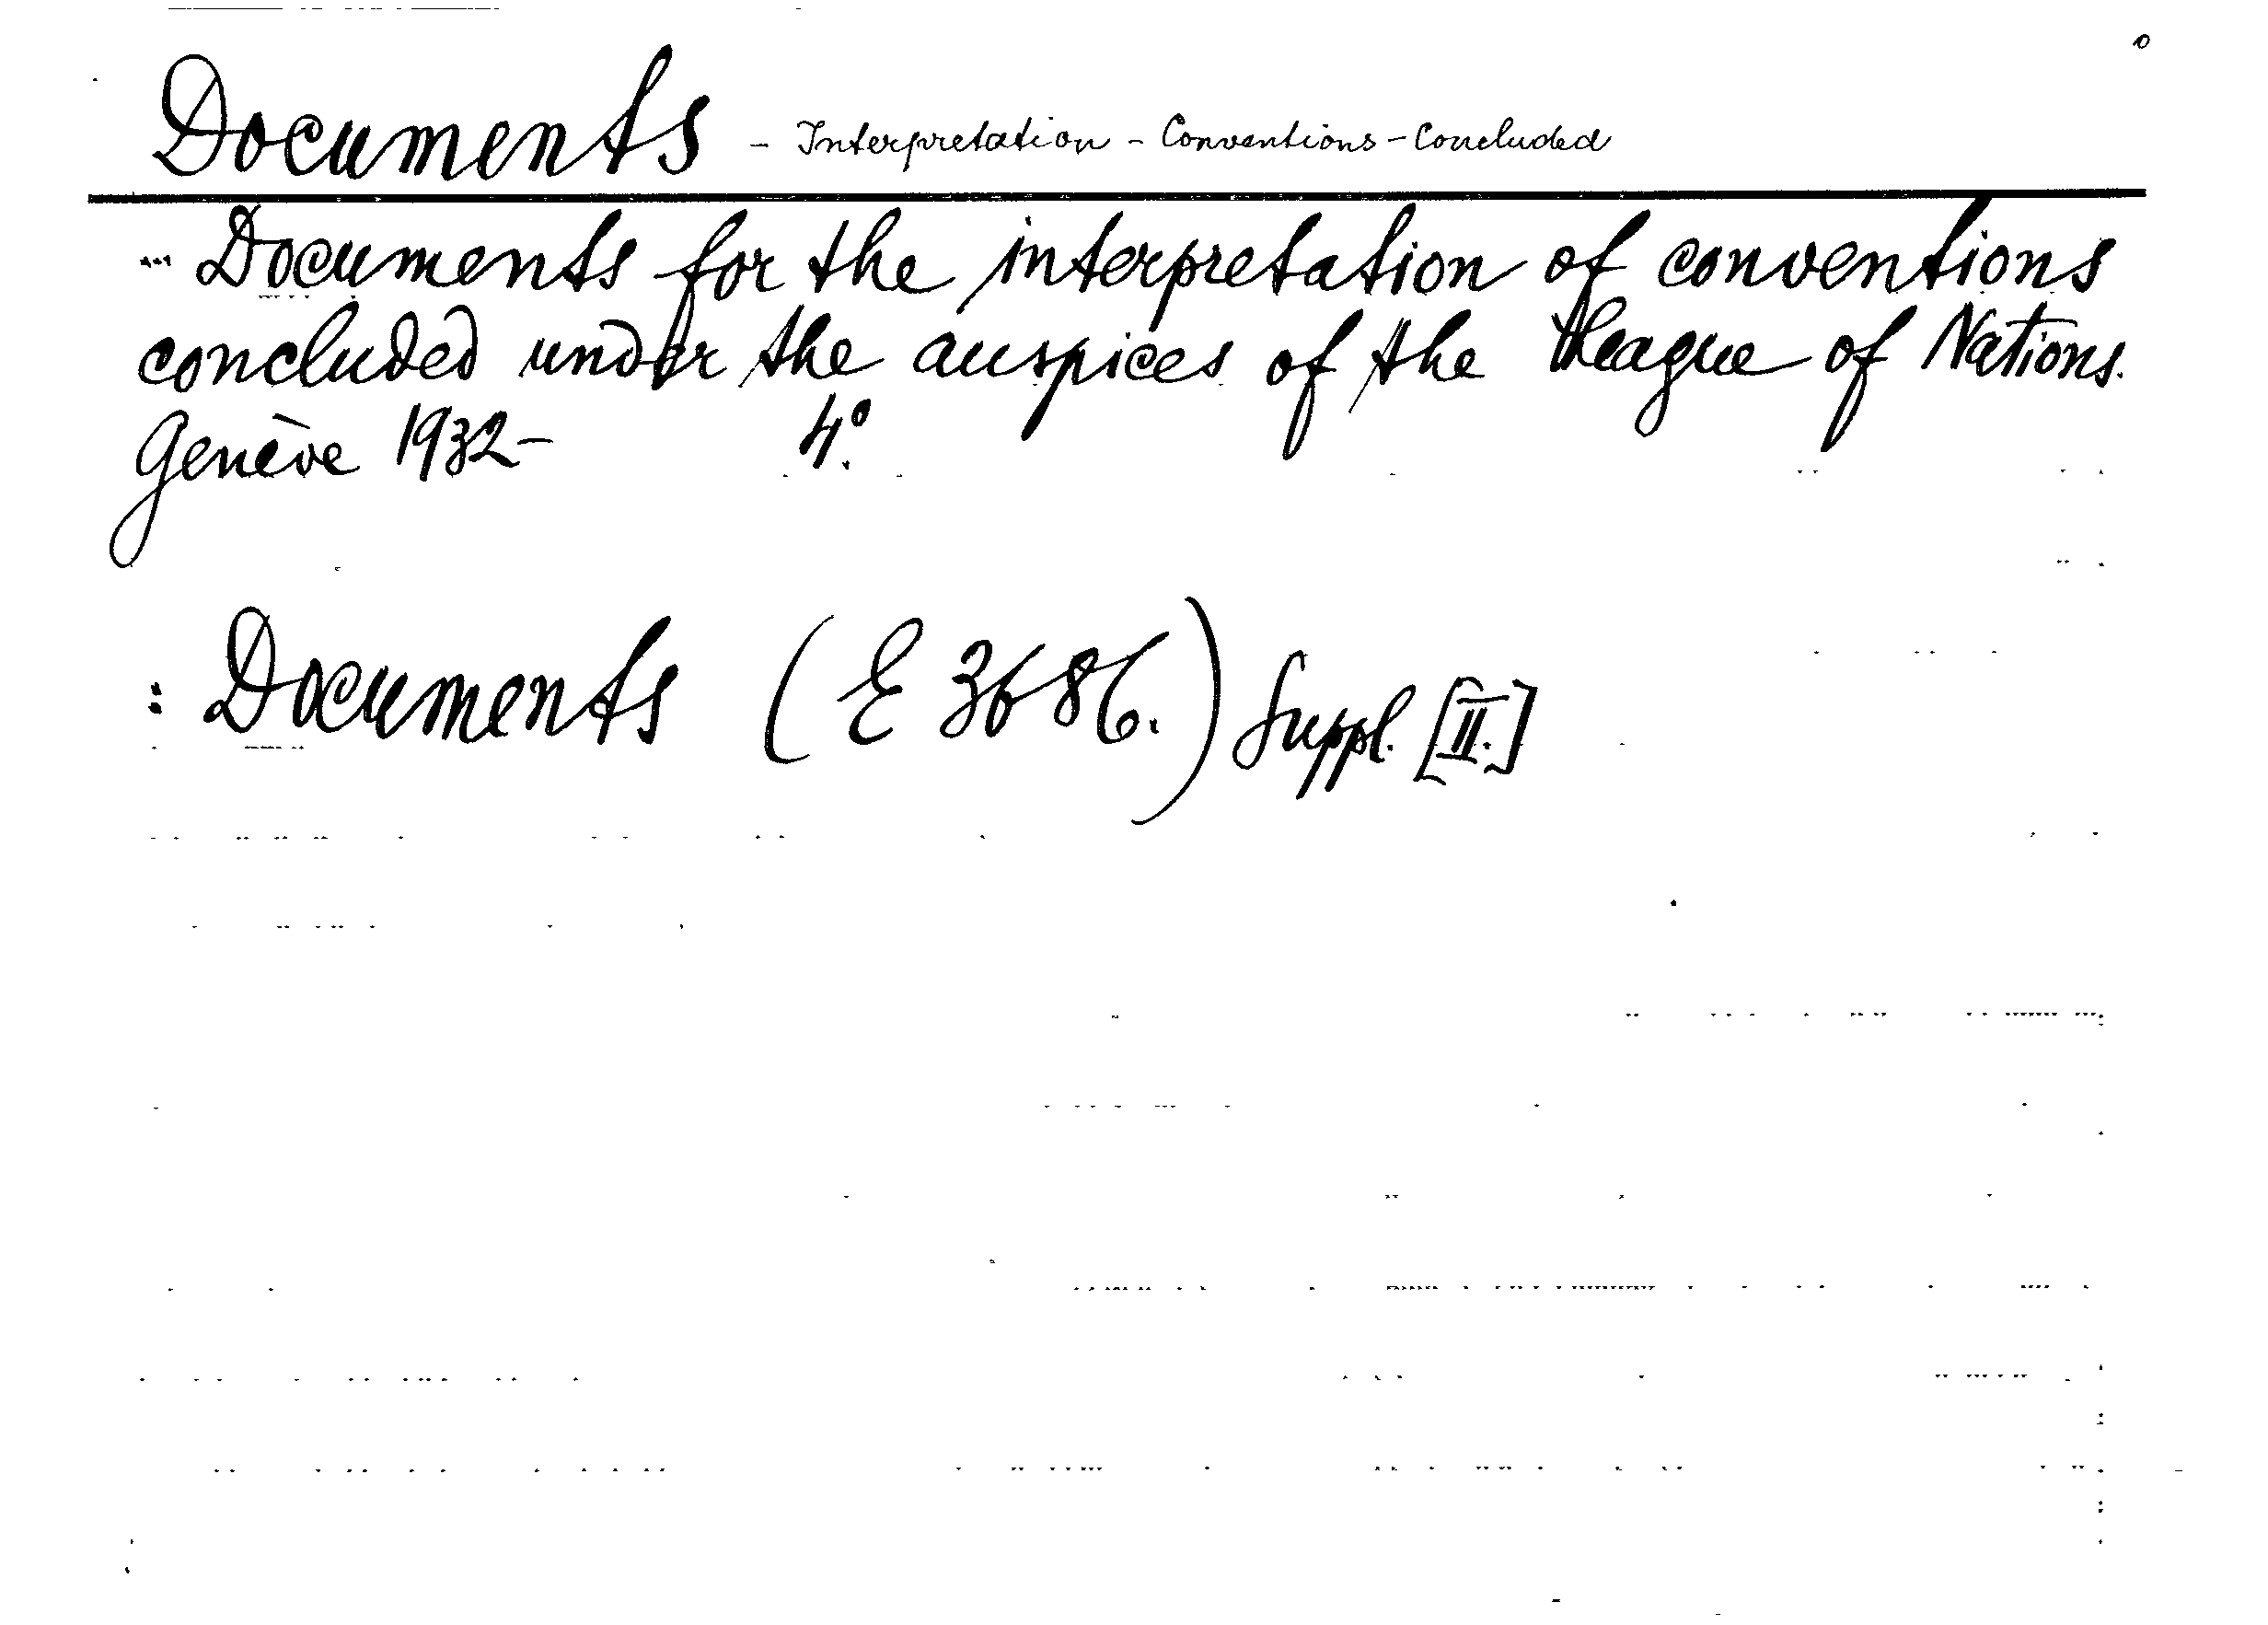 Documents - Interpretation - Conventions - Concluded
Documents for the interpretation of conventions
concluded under the auspices of the League of Nations.
Genève 1932- 4º.
: Documents (E 3686.) Suppl. [II.]